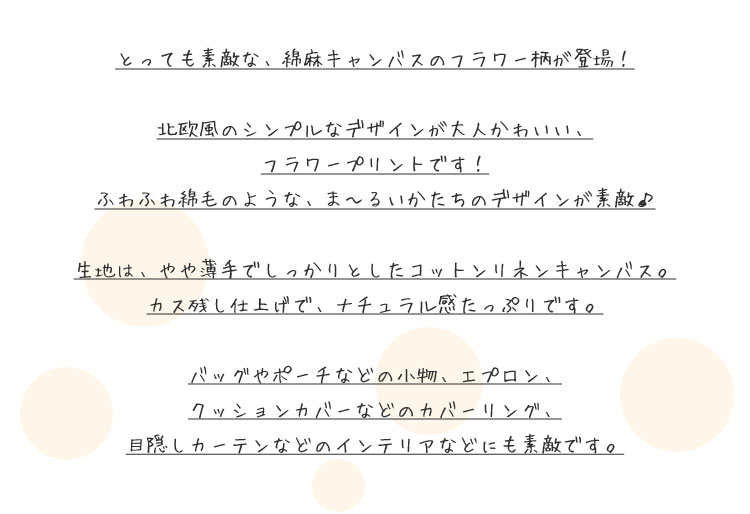 とっても素敵な、綿麻キャンバスのフラワー柄が登場！
北欧風のシンプルなデザインが大人かわいい、
フラワープリントです！
ふわふわ綿毛のような、ま〜るいかたちのデザインが素敵♪
生地は、やや薄手でしっかりとしたコットンリネンキャンバス。
カス残し仕上げで、ナチュラル感たっぷりです。
バッグやポーチなどの小物、エプロン、
クッションカバーなどのカバーリング、
目隠しカーテンなどのインテリアなどにも素敵です。